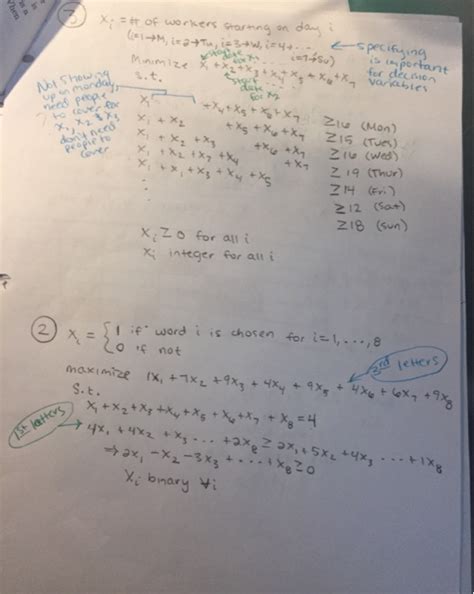 ③ Xᵢ = # of workers starting on day i
(i=1→M, i=2→Tu, i=3→W, i=4... i=7→Su)
← specifying is important for decision variables
Minimize X₁ + X₂ + X₃ + X₄ + X₅ + X₆ + X₇
start date for
start date for X₂
s.t.
Not showing up on monday, need people to cover for X₂ & X₃ don't need people to cover
X₁ + X₄ + X₅ + X₆ + X₇ ≥ 16 (Mon)
X₁ + X₂ + X₅ + X₆ + X₇ ≥ 15 (Tues)
X₁ + X₂ + X₃ + X₆ + X₇ ≥ 16 (Wed)
X₁ + X₂ + X₃ + X₄ + X₇ ≥ 19 (Thur)
X₁ + X₂ + X₃ + X₄ + X₅ ≥ 14 (Fri)
⋮ ≥ 12 (Sat)
≥ 18 (Sun)
Xᵢ ≥ 0 for all i
Xᵢ integer for all i
② Xᵢ = { 1 if word i is chosen for i=1,...,8
0 if not
3rd letters
maximize 1X₁ + 7X₂ + 9X₃ + 4X₄ + 9X₅ + 4X₆ + 6X₇ + 9X₈
s.t.
X₁ + X₂ + X₃ + X₄ + X₅ + X₆ + X₇ + X₈ = 4
1st letters
→ 4X₁ + 4X₂ + X₃ ... + 2X₈ ≥ 2X₁ + 5X₂ + 4X₃ ... + 1X₈
⇒ 2X₁ - X₂ - 3X₃ + ... + X₈ ≥ 0
Xᵢ binary ∀i